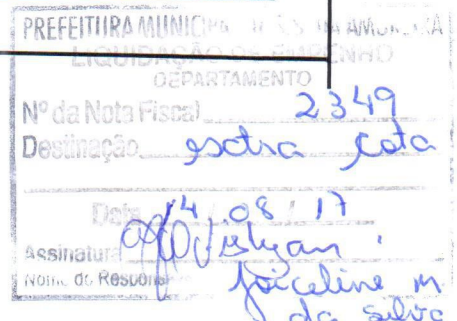 PREFEITURA MUNICIP
LIQUIDAÇÃO DE EMPENHO
DEPARTAMENTO
Nº da Nota Fiscal 2349
Destinação extra cota
Data 14 .08 / 17
Assinatura
Nome do Respons Joiceline M.
da Silva